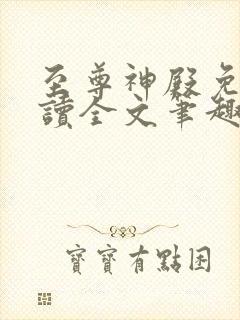 至尊神殿免
讀全文筆趣
寶寶有點困